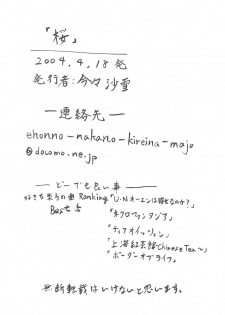 「桜」
2004.4.18発
発行者:今々沙雪
—連絡先—
ehonno-nakano-kireina-majo
@docomo.ne.jp
—どーでも良い事—
好きな東方の曲 Ranking「U.Nオーエンは彼女なのか?」
Best 5 「ネクロファンタジア」
「ティアオイエツォン」
「上海紅茶館~Chinese Tea~」
「ボーダーオブライフ」
※断転載はいけないと思います。